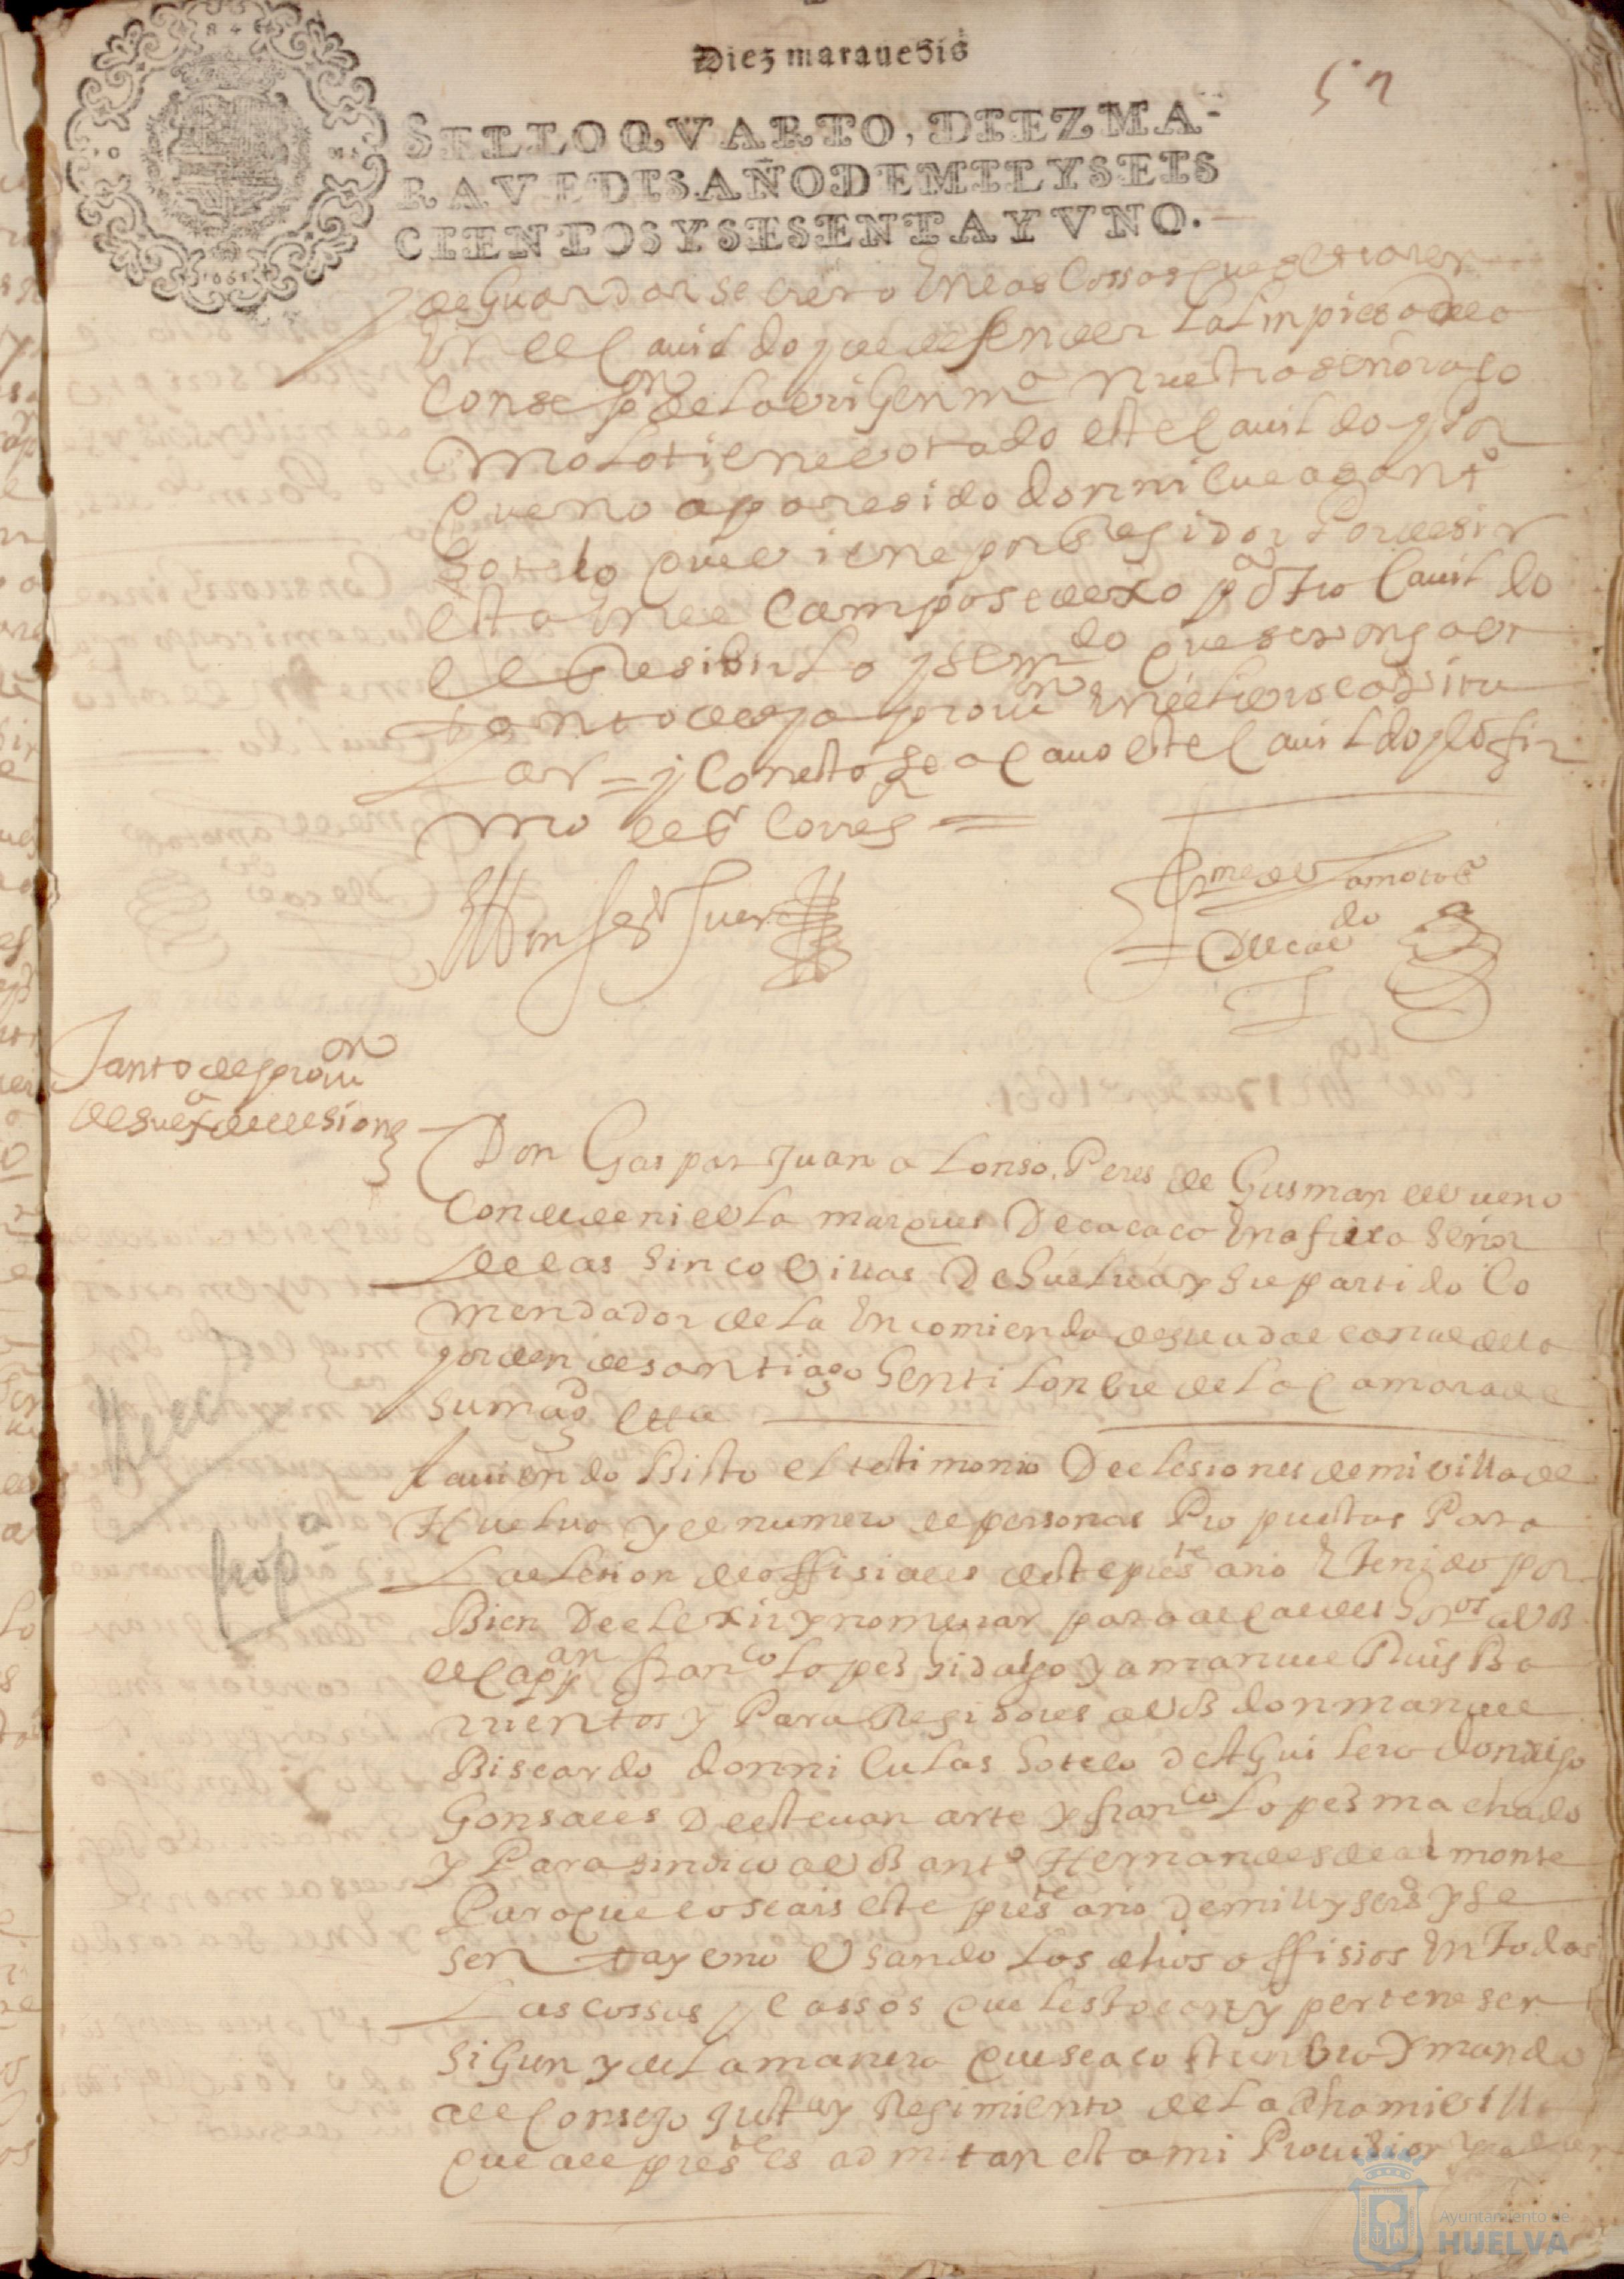 Diez marauedis
SELLO QVARTO, DIEZ MA-
RAVEDIS, AÑO DE MIL Y SEIS
CIENTOS Y SESENTA Y VNO.
de Guardar secreto En las Cossas que se trataren
En el Cauildo y de defender la Linpiesa de la
Consepon de la Virgen ma nuestra señora co
mo lo tiene votado este Cauildo y Por
que no a paresido don nicolas ant
Sotelo que viene por Regidor Por desir
esta En el Campo se dexo pa otro Cauildo
el Resibirlo y se mdo que se ponga vn
tanto de la prouion En este libro Capitu
lar = y Con esto se acauo este Cauildo y lo fir
mo el Sr Correg =
Tanto de prouion
de su exa de elesiones
Don Gaspar Juan alonso Peres de Gusman el bueno
Conde de niebla marques De cacaca En africa Señor
de las Sinco Villas De Huelua y Su partido Co
mendador de la Encomienda de guadalcanal de la
orden de santiago Gentilonbre de la Camara de
Su magd etta
hauiendo Bisto el testimonio De elesiones de mi villa de
Huelua y el numero de personas Propuestas Para
La elesion de offisiales deste preste año E tenido por
Bien De elexir y nombrar para alcaldes Hordos a Vs
el Capan Franco Lopes hidalgo y a manuel Ruis Ba
rrientos y Para Regidores a Vs don manuel
Biscardo don nicolas Sotelo De Aguilera don diego
Gonsales De esteuan arte y franco Lopes machado
y Para Sindico a Vs anto Hernandes de almonte
Para que lo seais este preste año De mill y seisos y se
senta y vno Usando Los dhos offisios En todas
Las cossas y Cassos que les tocan y pertenesen
Sigun y de La manera que se a costunbrado Y mando
al Consejo Justa y Regimiento de La dha mi villa
que al preste es admitan esta mi Prouision
Ayuntamiento de
HUELVA